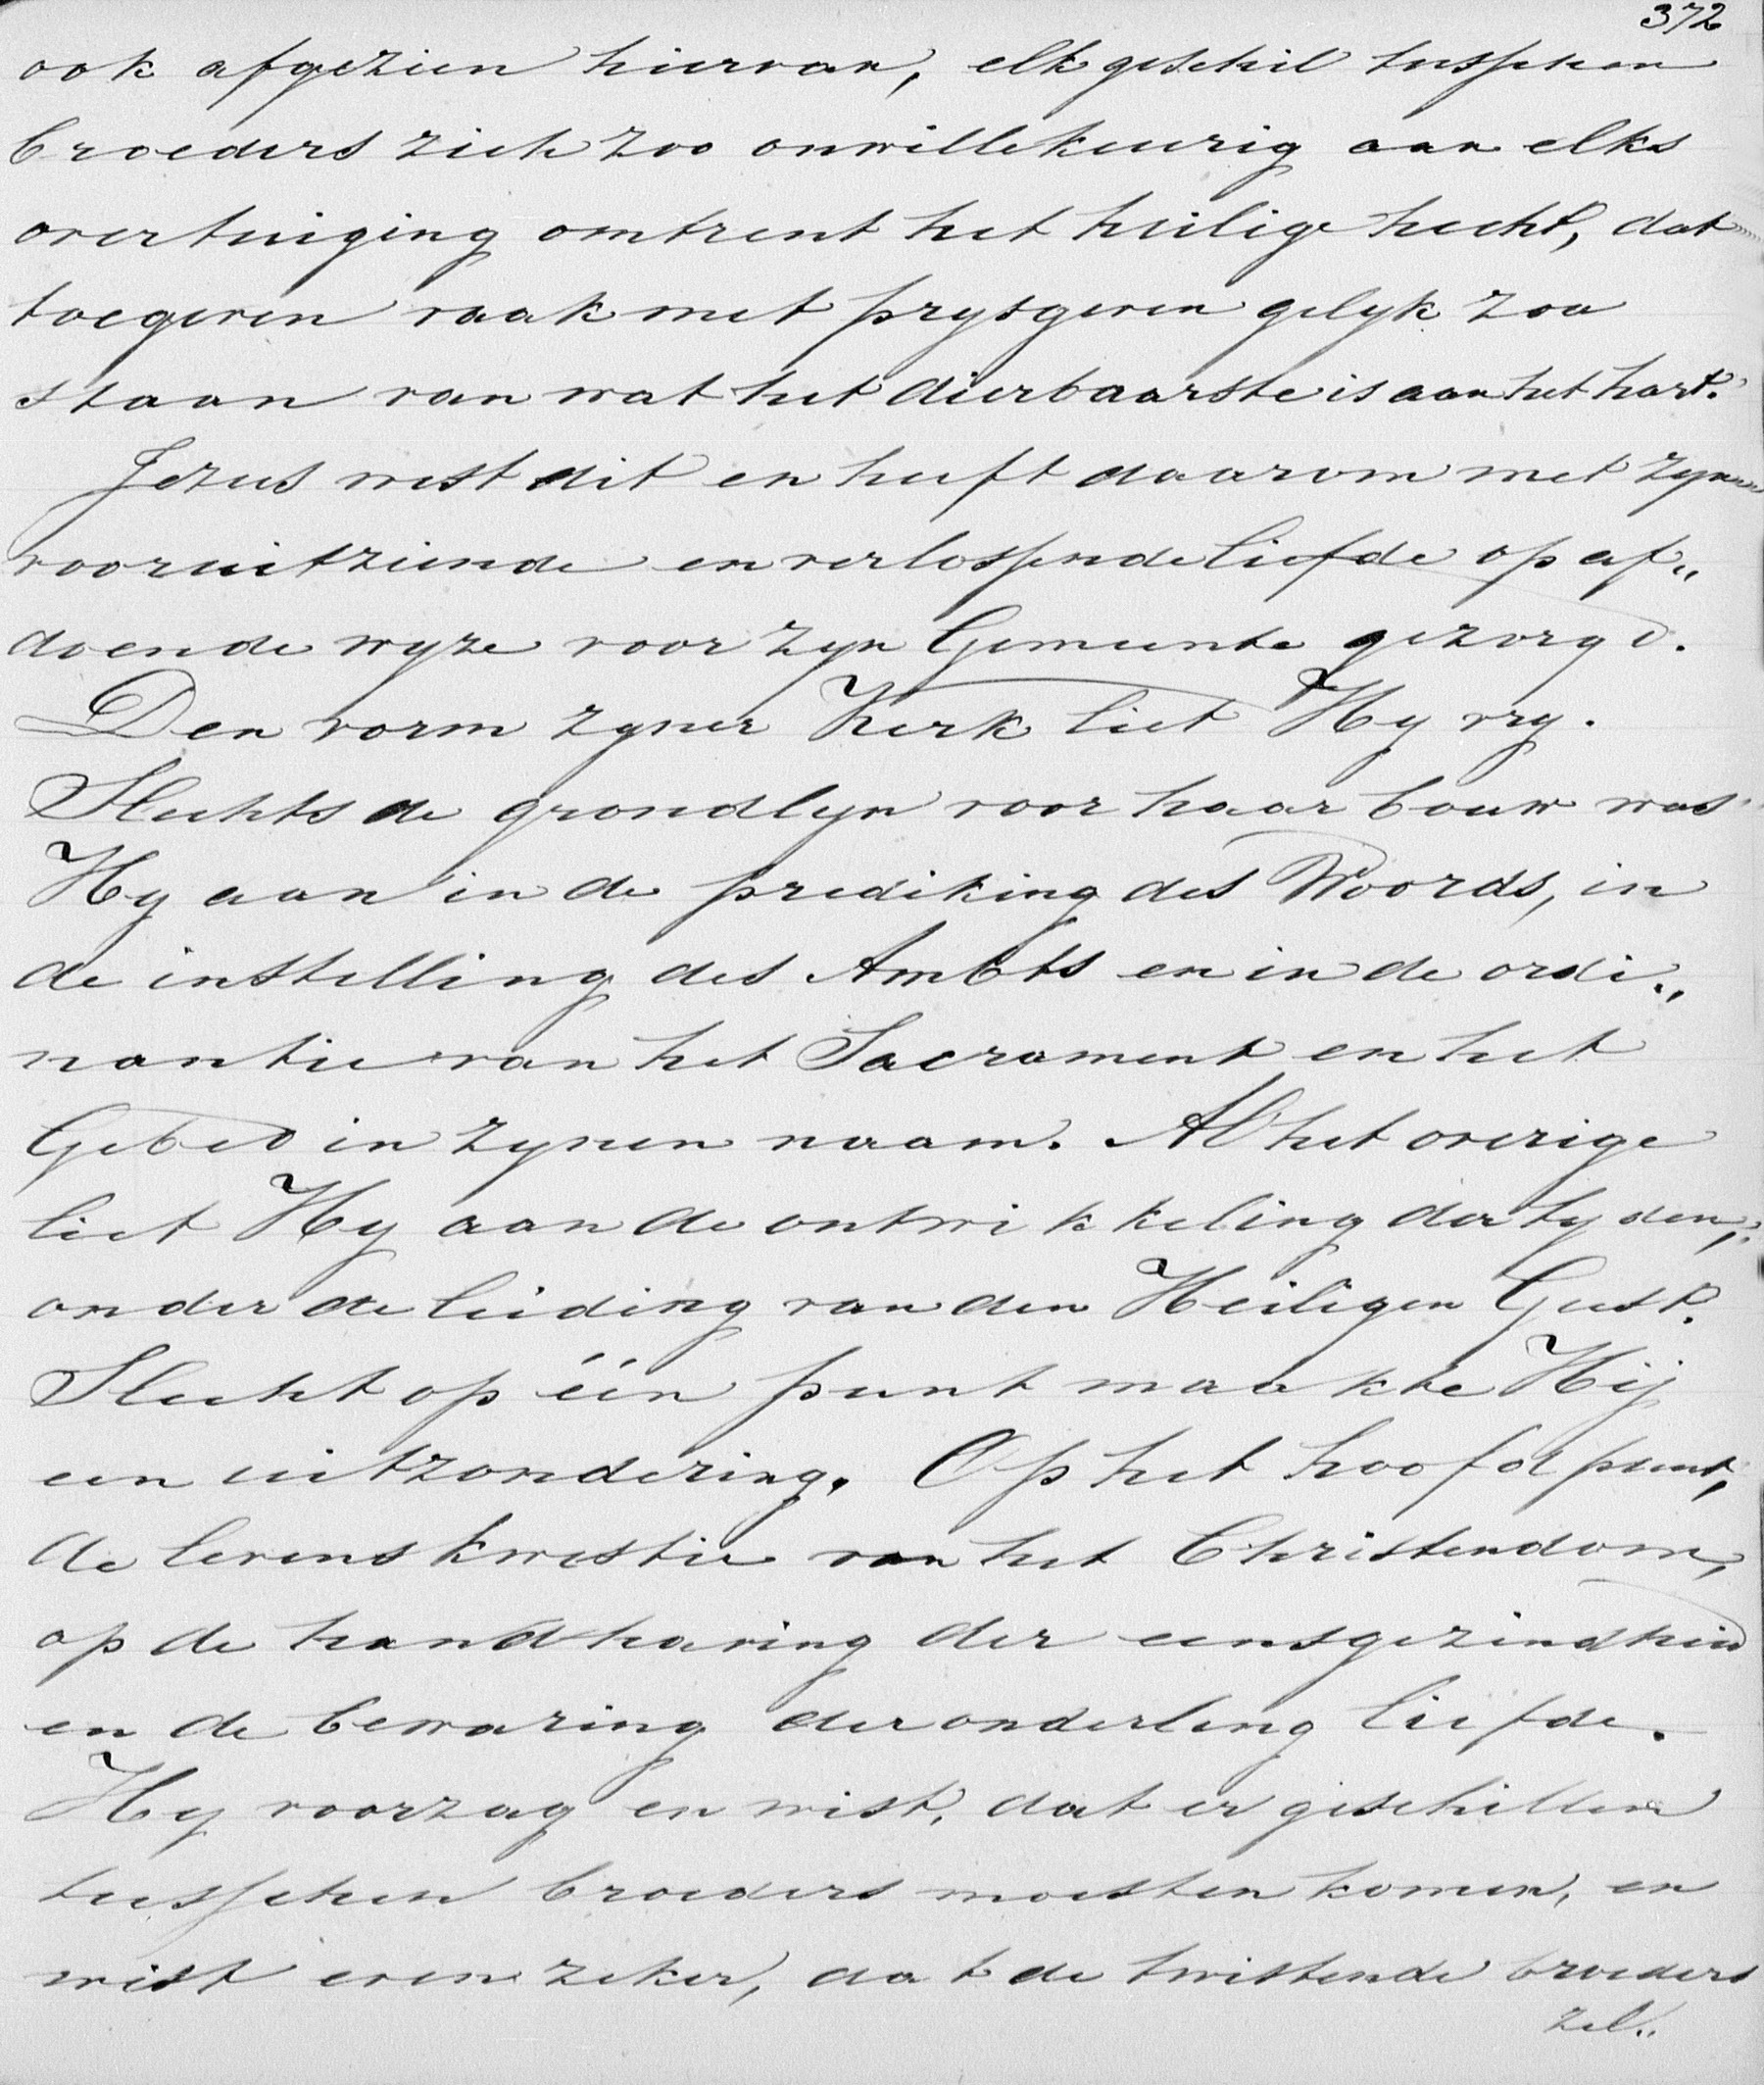 372
ook afgezien hiervan, elk geschil tusschen
broeders zich zoo onwillekeurig aan elks
overtuiging omtrent het heilige hecht, dat
toegeven vaak met prysgeven gelyk zou
staan van wat het dierbaarste is aan het hart.
Jezus wist dit en heeft daarom met zyne
vooruitziende en verlossende liefde op af„
doende wyze voor zyn Gemeente gezorgd.
Den vorm zyner Kerk liet Hy vry.
Slechts de grondlyn voor haar bouw wees
Hy aan in de prediking des Woords, in
de instelling des Ambts en in de ordi„
nantie van het Sacrament en het
Gebed in zynen naam. Al het overige
liet Hy aan de ontwikkeling der tyden,
onder de leiding van den Heiligen Geest.
Slecht op één punt maakte Hij
een uitzondering. Op het hoofdpunt,
de levenskwestie van het Christendom,
op de handhaving der eensgezindheid
en de bewaring der onderling liefde.
Hy voorzag en wist, dat er geschillen
tusschen broeders moesten komen, en
wist even zeker, dat de twistende broeders
zel„